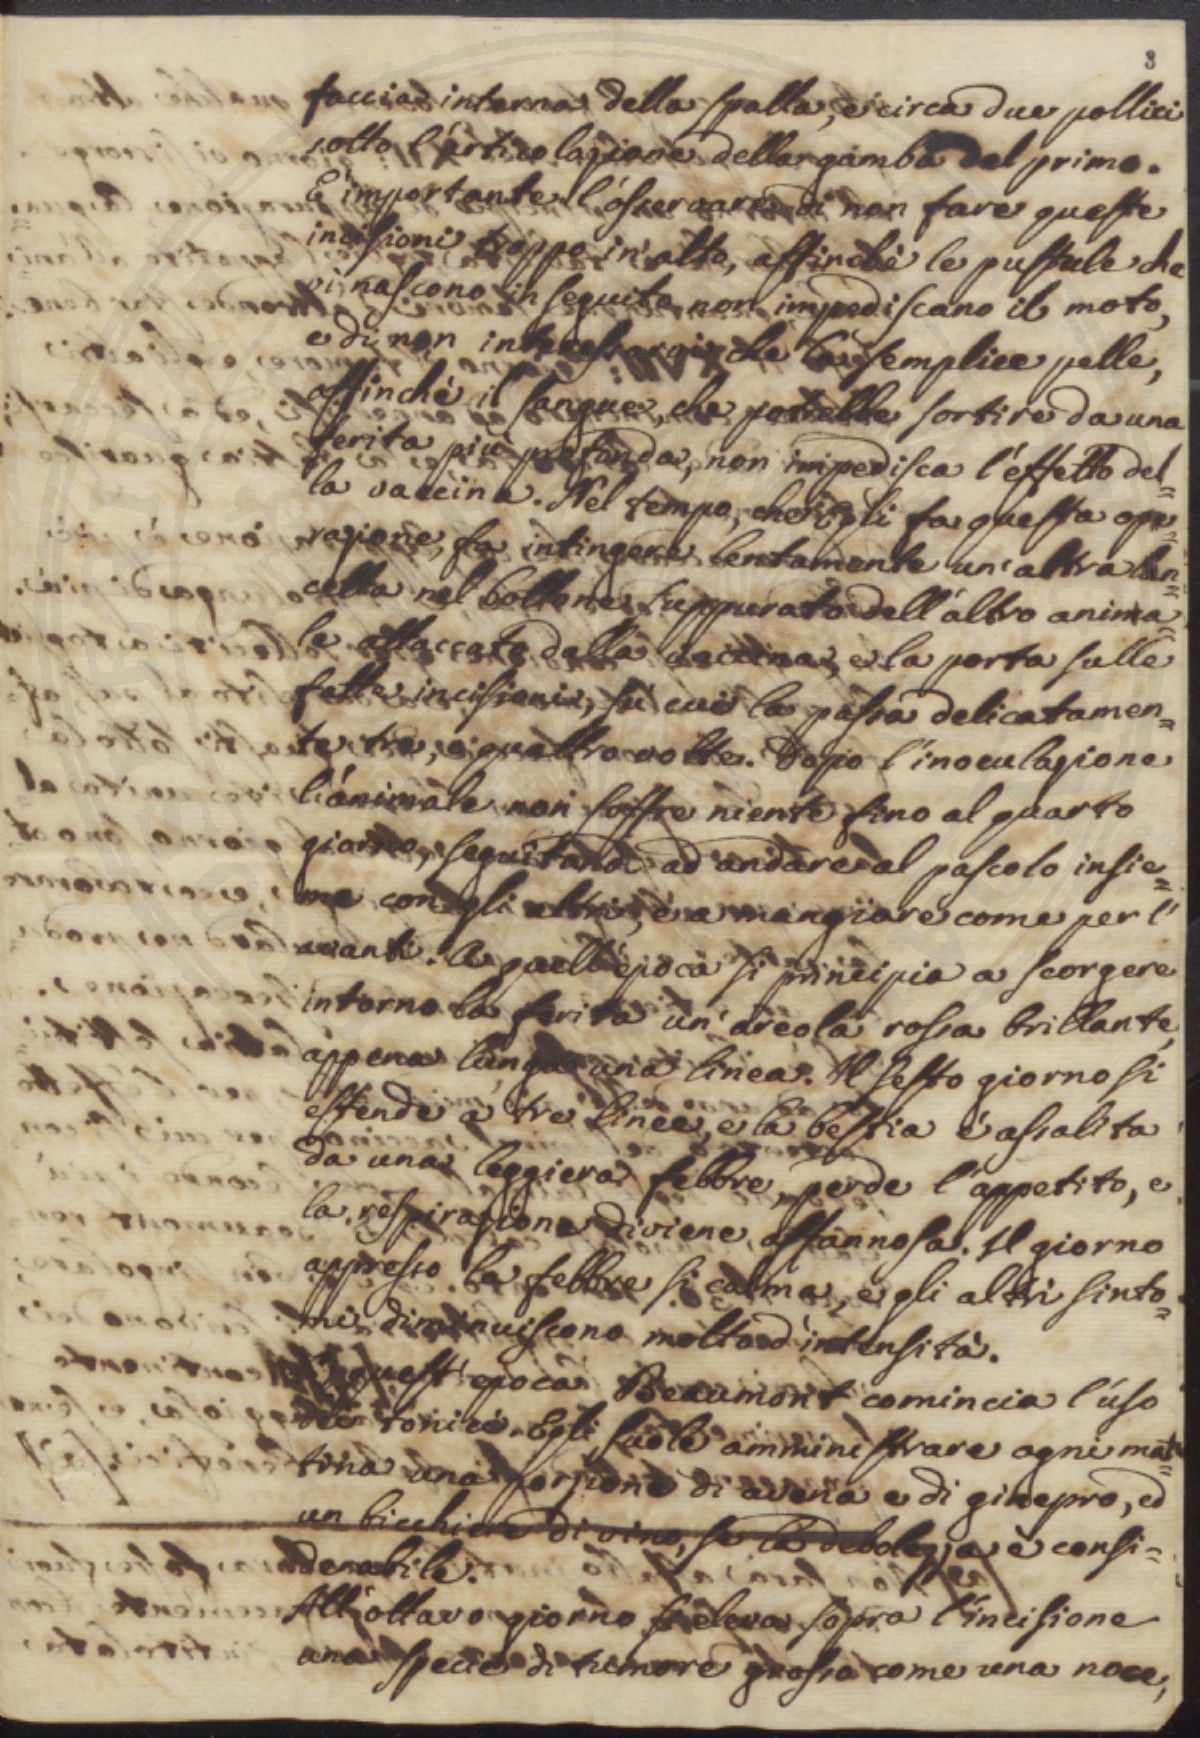 3
faccia interna della spalla, e circa due pollici
sotto l'articolazione della gamba dal primo.
È importante l'osservare di non fare queste
incisioni troppo in alto, affinchè le pustule che
vi nascono in seguito non impediscano il moto,
e di non interessarvi che la semplice pelle,
affinchè il sangue, che potrebbe sortire da una
ferita più profonda, non impedisca l'effetto del=
la vaccina. Nel tempo, che egli fa questa ope=
razione, fa intingere lentamente un'altra lan=
cetta nel bottone suppurato dell'altro anima=
le attaccato dalla vaccina, e la porta sulle
fatte incisioni, su cui la passa delicatamen=
te tre, o quattro volte. Dopo l'inoculazione
l'animale non soffre niente fino al quarto
giorno, seguitando ad andare al pascolo insie=
me con gli altri, e a mangiare come per l'
avanti. A quell'epoca si principia a scorgere
intorno la ferita un'areola rossa brillante,
appena lunga una linea. Il sesto giorno si
estende a tre linee, e la bestia è assalita
da una leggiera febbre, perde l'appetito, e
la respirazione diviene affannosa. Il giorno
appresso la febbre si calma, e gli altri sinto=
mi diminuiscono molto d'intensità.
quest'epoca Beaumont comincia l'uso
dei tonici. Egli suole amministrare ogni mat=
tina una porzione di avena e di ginepro, ed
un bicchiere di vino, se la debolezza è consi=
derabile.
All'ottavo giorno si eleva sopra l'incisione
una specie di tumore grosso come una noce,